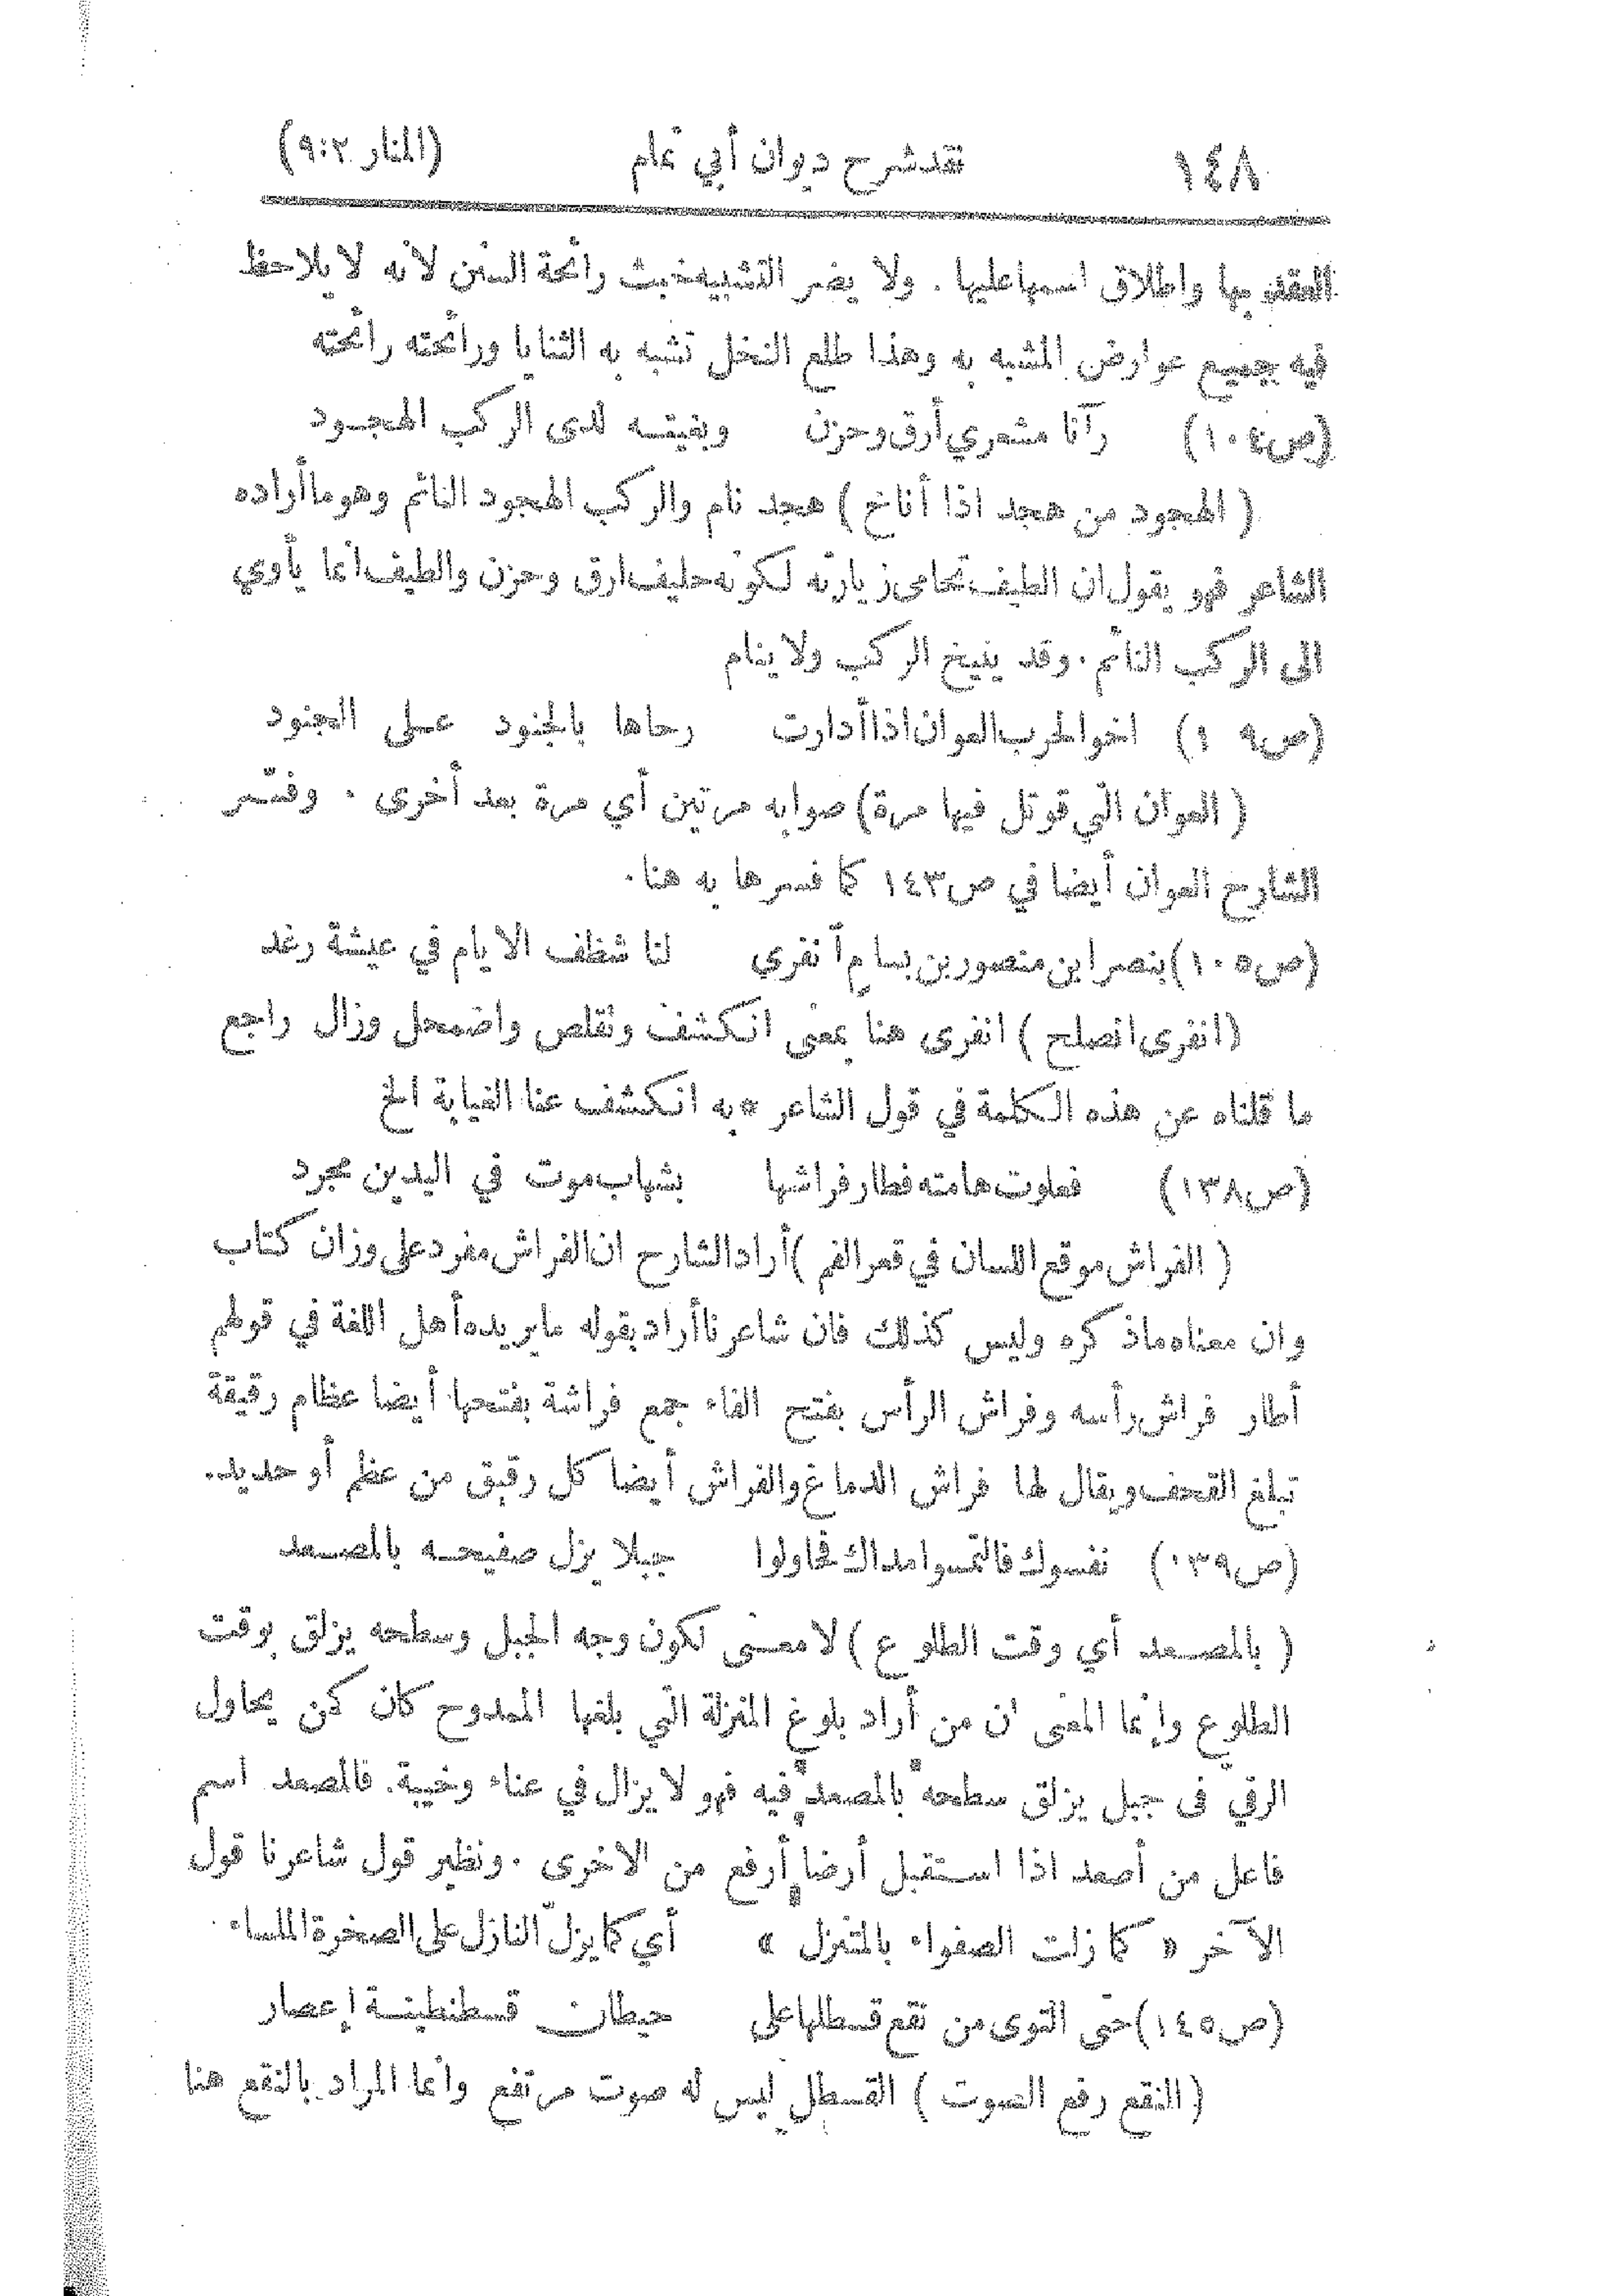 ١٤٨ نقد شرح ديوان أبي تمام (المنار ٩:٢)
العقد بها واطلاق اسمها عليها . ولا يضر التشبيه خبث رائحة السنن لانه لا يلاحظ
فيه جميع عوارض المشبه به وهذا طلع النخل تشبه به الثنايا ورائحته رائحته
(ص١٠٤) رآنا مشعري أرق وحزن وبغيتـه لدى الركب الهجـود
( الهجود من هجد اذا أناخ ) هجد نام والركب الهجود النائم وهو ما أراده
الشاعر فهو يقول ان الطيف تحامى زيارته لكونه حليف ارق وحزن والطيف انما يأوي
الى الركب النائم . وقد ينيخ الركب ولا ينام
(ص٩ ١) اخو الحرب العوان اذا أدارت رحاها بالجنود عـلى الجنود
( العوان التي قوتل فيها مرة) صوابه مرتين أي مرة بعد أخرى . وفسّـر
الشارح العوان أيضا في ص١٤٣ كما فسرها به هنا.
(ص١٠٥) بنصر ابن منصور بن بسام آنفري لنا شظف الايام في عيشة رغد
(انفرى انصلح ) انفرى هنا بمعنى انكشف وتقلص واضمحل وزال راجع
ما قلناه عن هذه الكلمة في قول الشاعر * به انكشف عنا الغيابة الخ
(ص١٣٨) فعلوت هامته فطار فراشها بشهاب موت في اليدين مجرد
( الفراش موقع اللسان في قعر الفم )أراد الشارح ان الفراش مفرد على وزان كتاب
وان معناه ماذكره وليس كذلك فان شاعرنا أراد بقوله ما يريده أهل اللغة في قولهم
أطار فراش رأسه وفراش الرأس بفتح الفاء جمع فراشة بفتحها أيضا عظام رقيقة
تبلغ القحف ويقال لها فراش الدماغ والفراش أيضا كل رقيق من عظم أو حديد.
(ص١٣٩) نفسوك فالتمسوا مداك فحاولوا جبلا يزل صفيحـه بالمصـعد
( بالمصـعد أي وقت الطلوع ) لا معـنى لكون وجه الجبل وسطحه يزلق بوقت
الطلوع وإنما المعنى ان من أراد بلوغ المنزلة التي بلغها الممدوح كان كمن يحاول
الرقي فى جبل يزلق سطحه بالمصعد فيه فهو لا يزال في عناء وخيبة. فالمصعد اسم
فاعل من أصعد اذا استقبل أرضا أرفع من الاخرى . ونظير قول شاعرنا قول
الآخر « كما زلت الصفواء بالمتنزل » أي كما يزلّ النازل على الصخرة الملساء
(ص١٤٥) حتى التوى من نقع قسطلها على حيطان قسطنطينـة إعصار
( النقع رفع الصوت ) القسطل ليس له صوت مرتفع وانما المراد بالنقع هنا